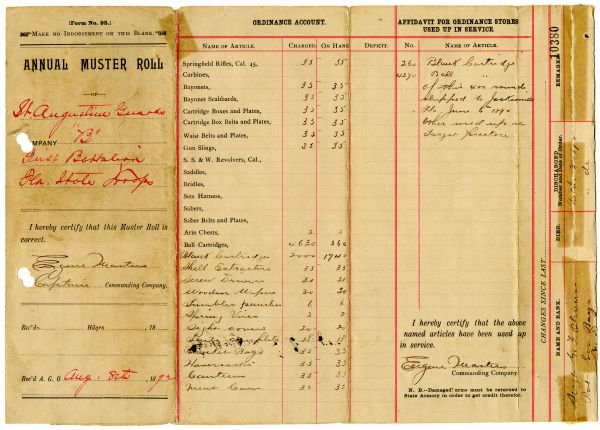 (Form No. 98.)
MAKE NO INDORSEMENT ON THIS BLANK.
ANNUAL MUSTER ROLL
OF
St. Augustine Guards
COMPANY "B"
First Battalion
Fla. State Troops
I hereby certify that this Muster Roll is
correct.
Eugene Masters
Captain Commanding Company.
Rec'd. Hdqrs 18
Rec'd A. G. O Aug. 8th, 1892
ORDNANCE ACCOUNT.
NAME OF ARTICLE. CHARGED. ON HAND. DEFICIT.
Springfield Rifles, Cal. 45, 35 35
Carbines,
Bayonets, 35 35
Bayonet Scabbards, 35 35
Cartridge Boxes and Plates, 35 35
Cartridge Box Belts and Plates, 35 35
Waist Belts and Plates, 35 35
Gun Slings, 35 35
S. S. & W. Revolvers, Cal.,
Saddles,
Bridles,
Sets Harness,
Sabers,
Saber Belts and Plates,
Arm Chests, 2 2
Ball Cartridges, 4630 360
Blank Cartridge 2000 1740
Shell Extractors 35 35
Screw Drivers 20 20
Wooden Wipers 20 20
Tumbler punches 6 6
Spring Vices 2 2
18 18
Blanket Bags 35 35
Haversacks 35 35
Canteens 35 35
Meat Cans 35 35
AFFIDAVIT FOR ORDNANCE STORES
USED UP IN SERVICE.
No. NAME OF ARTICLE.
260 Blank Cartridge
4270 Ball "
of this 400 rounds
shipped to Jacksonville
Fla June 6th
Other used up in
Target practice
I hereby certify that the above
named articles have been used up
in service.
Eugene Masters
Commanding Company.
N. B.—Damaged arms must be returned to
State Armory in order to get credit therefor.
CHANGES SINCE LAST
REMARKS
10380
DISCHARGED
Number and Date of Order.
DIED.
NAME AND RANK.